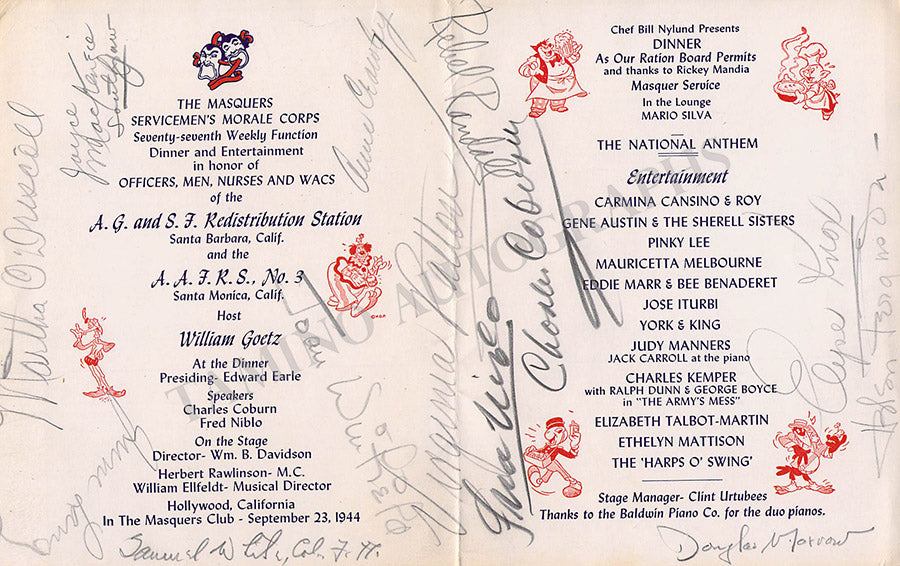 THE MASQUERS
SERVICEMEN'S MORALE CORPS
Seventy-seventh Weekly Function
Dinner and Entertainment
in honor of
OFFICERS, MEN, NURSES AND WACS
of the
A. G. and S. F. Redistribution Station
Santa Barbara, Calif.
and the
A. A. F. R. S., No. 3
Santa Monica, Calif.
Host
William Goetz
At the Dinner
Presiding- Edward Earle
Speakers
Charles Coburn
Fred Niblo
On the Stage
Director- Wm. B. Davidson
Herbert Rawlinson- M.C.
William Ellfeldt- Musical Director
Hollywood, California
In The Masquers Club - September 23, 1944
Martha O'Driscoll
Joyce
MacKenzie
Fred Niblo
Charles Coburn
Chef Bill Nylund Presents
DINNER
As Our Ration Board Permits
and thanks to Rickey Mandia
Masquer Service
In the Lounge
MARIO SILVA
THE NATIONAL ANTHEM
Entertainment
CARMINA CANSINO & ROY
GENE AUSTIN & THE SHERELL SISTERS
PINKY LEE
MAURICETTA MELBOURNE
EDDIE MARR & BEE BENADERET
JOSE ITURBI
YORK & KING
JUDY MANNERS
JACK CARROLL at the piano
CHARLES KEMPER
with RALPH DUNN & GEORGE BOYCE
in "THE ARMY'S MESS"
ELIZABETH TALBOT-MARTIN
ETHELYN MATTISON
THE 'HARPS O' SWING'
Stage Manager- Clint Urtubees
Thanks to the Baldwin Piano Co. for the duo pianos.
Elyse Knox
Douglas Morrow
TAMINO AUTOGRAPHS